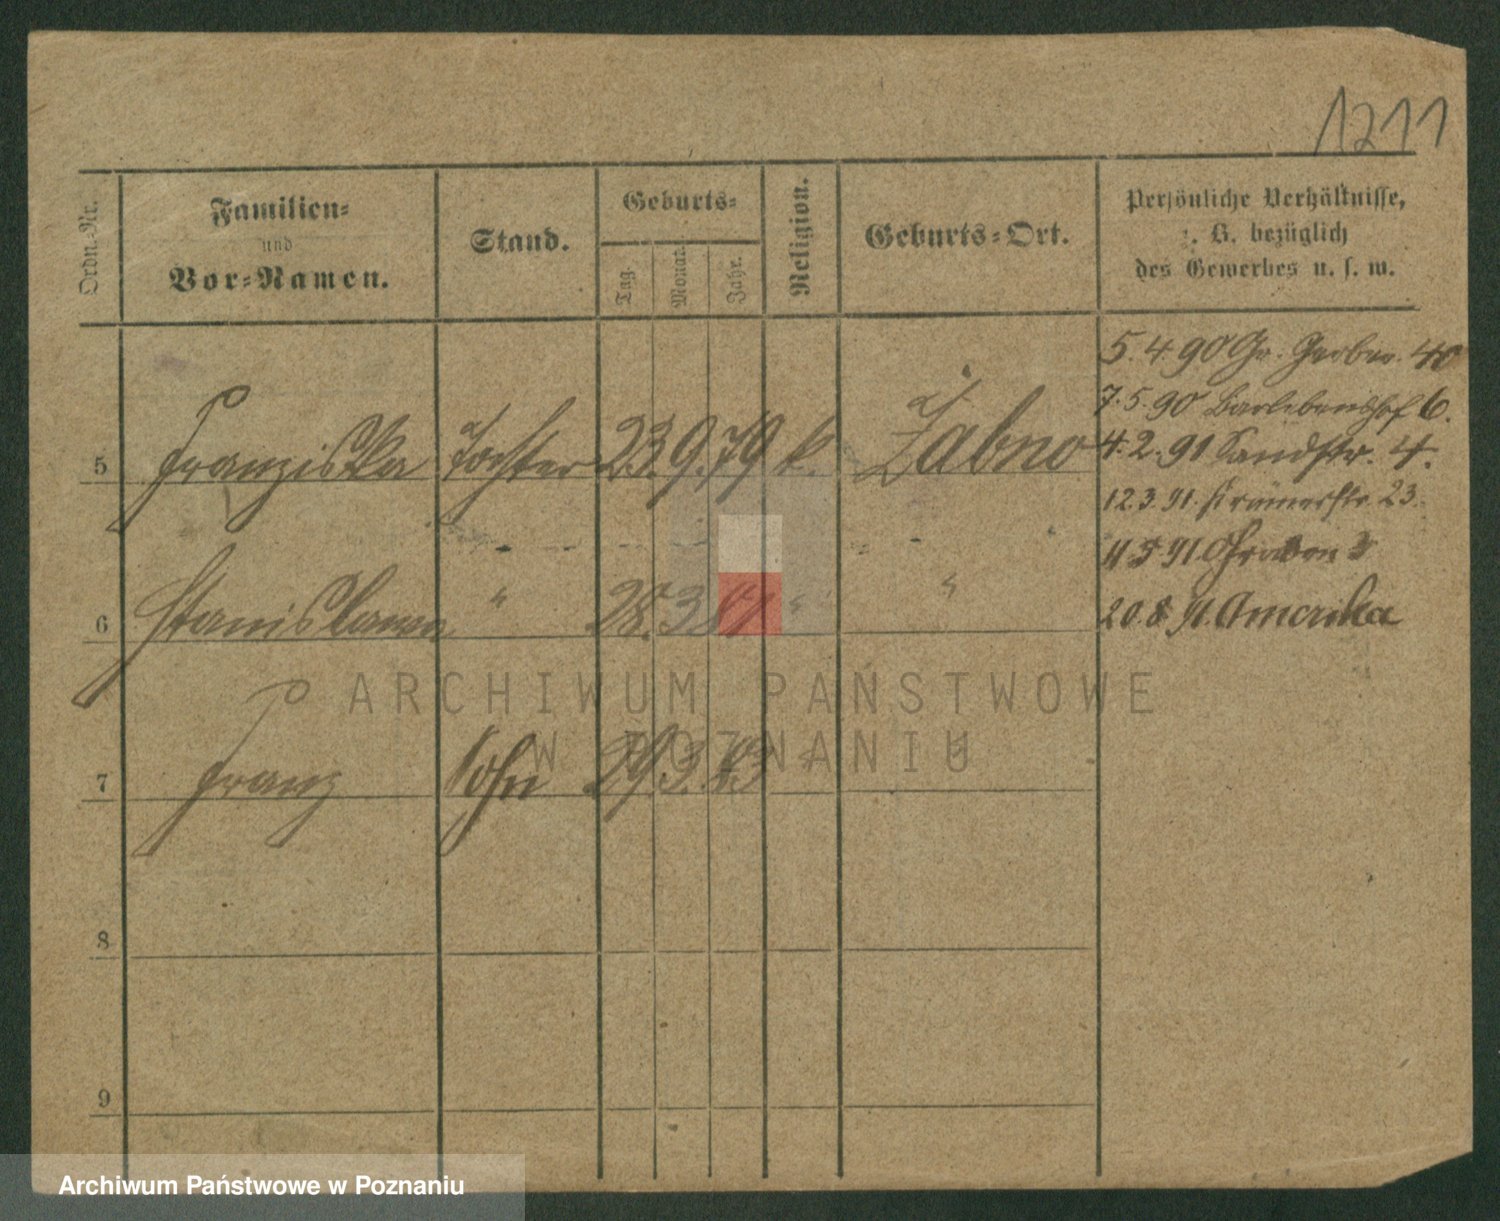 1211
Ordn.-Nr.
Familien-
und
Vor-Namen.
Stand.
Geburts-
Tag.
Monat.
Jahr.
Religion.
Geburts-Ort.
Persönliche Verhältnisse,
z. B. bezüglich
des Gewerbes u. s. w.
5 Franziska Tochter 23. 9. 79 k. Żabno
6 Stanislawa " 28. 3. " "
7 Franz Sohn 29 3. 83 " "
8
9
5. 4. 90 Gr. Gerber. 40
7. 5. 90 Barlebenshof 6.
4. 2. 91 Sandstr. 4.
12. 3. 91. Krämerstr. 23.
11 5 91. Graben 3
20. 8 91. Amerika
ARCHIWUM PAŃSTWOWE
W POZNANIU
Archiwum Państwowe w Poznaniu